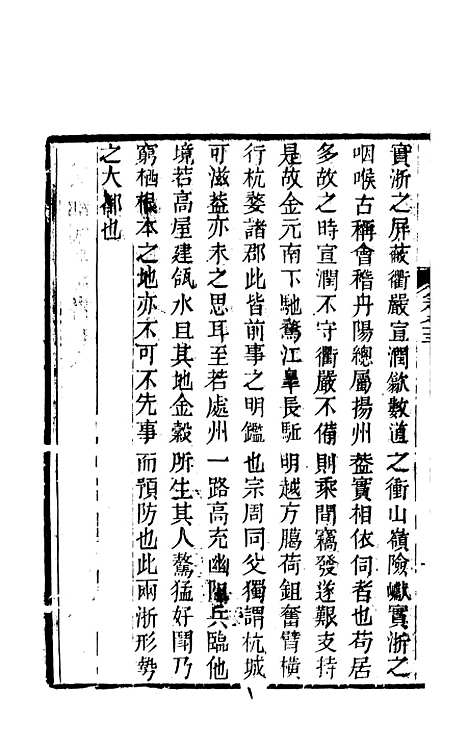 實浙之屏蔽衢嚴宣潤歙數道之衝山嶺險巇實浙之
咽喉古稱會稽丹陽總屬揚州葢實相依伺者也苟居
多故之時宣潤不守衢嚴不備則乘間竊發遂艱支持
是故金元南下馳騖江臯長駈明越方臈荷鉏奮臂橫
行杭婺諸郡此皆前事之明鑑也宗周同父獨謂杭城
可滋葢亦未之思耳至若處州一路高充幽險兵臨他
境若高屋建瓴水且其地金穀所生其人鷙猛好鬪乃
窮栖根本之地亦不可不先事而預防也此兩浙形勢
之大都也